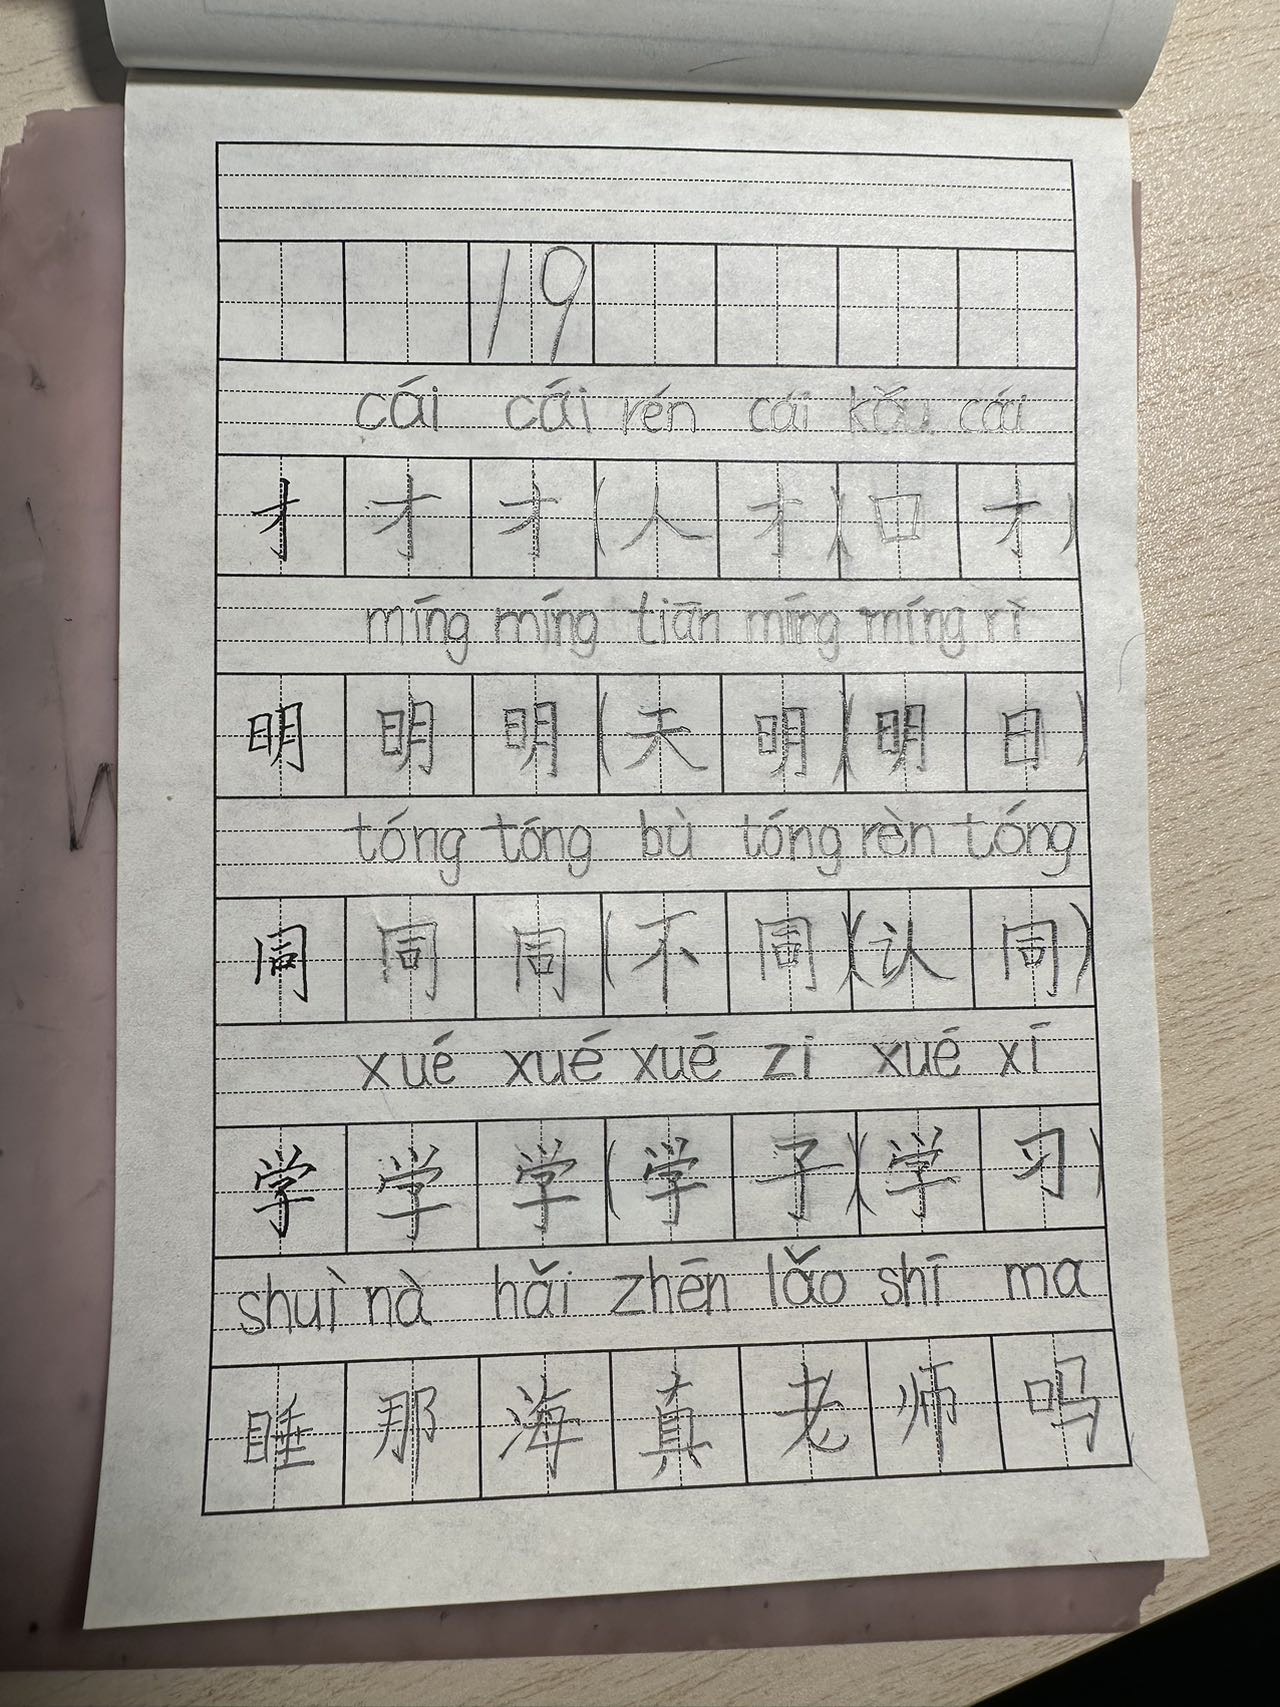 19
cái cái rén cái kǒu cái
才 才 才 (人 才)(口 才)
míng míng tiān míng míng rì
明 明 明 (天 明)(明 日)
tóng tóng bù tóng rèn tóng
同 同 同 (不 同)(认 同)
xué xué xué zi xué xī
学 学 学 (学 子)(学 习)
shuì nà hǎi zhēn lǎo shī ma
睡 那 海 真 老 师 吗